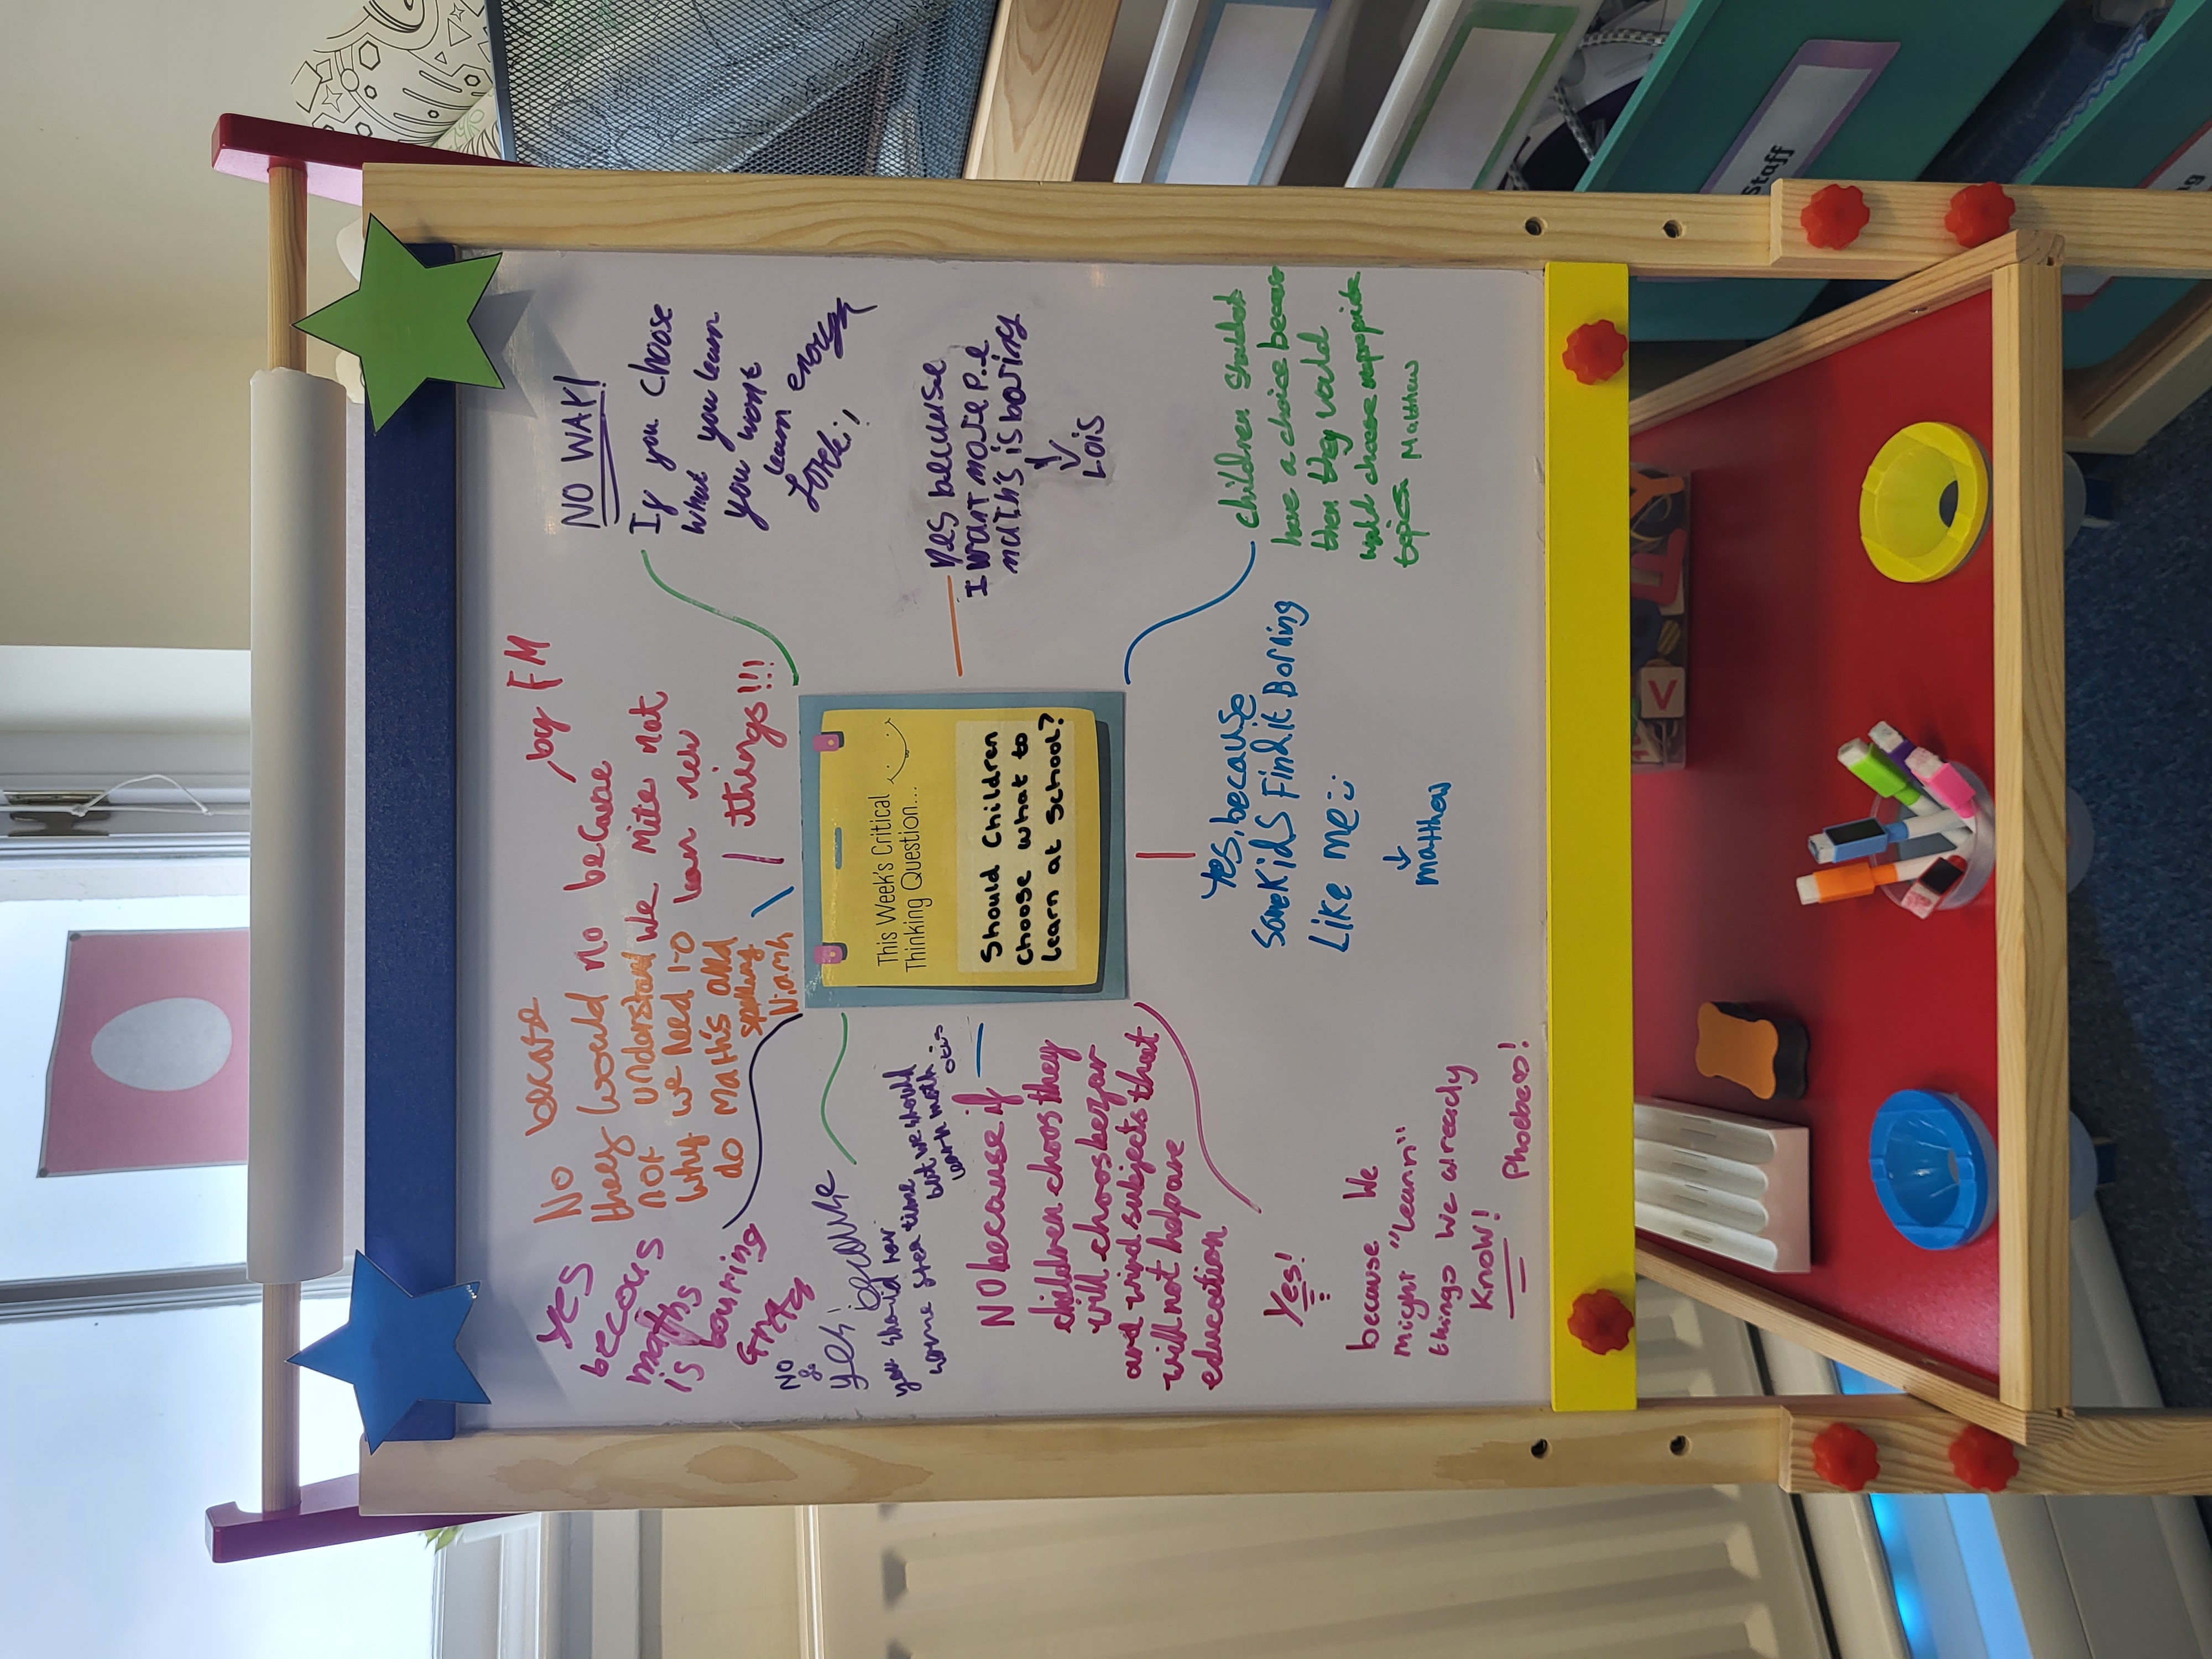 Yes
becous
maths
is bouring
No becase
they would no
not understand
why we need to
do maths and
spelling
Niamh
by FM
no because
we mite not
lean new
things!!!
NO WAY!
If you choose
what you learn
you wont
learn enough
This Week's Critical
Thinking Question...
Should Children
choose what to
learn at School?
NO
&
yes' because
you should hav
some free time
but we should
learn math
otis
yes because
I want more p.e
math's is boring
Lois
NO because if
children choos they
will choos
and
will not help are
education
Yes, because
some kids Find it Borning
Like me
matthew
children shouldnt
have a choice
then they would
would choose
topics Matthew
Yes!
because We
might "learn"
things we already
Know!
Phoebe!
Staff
V